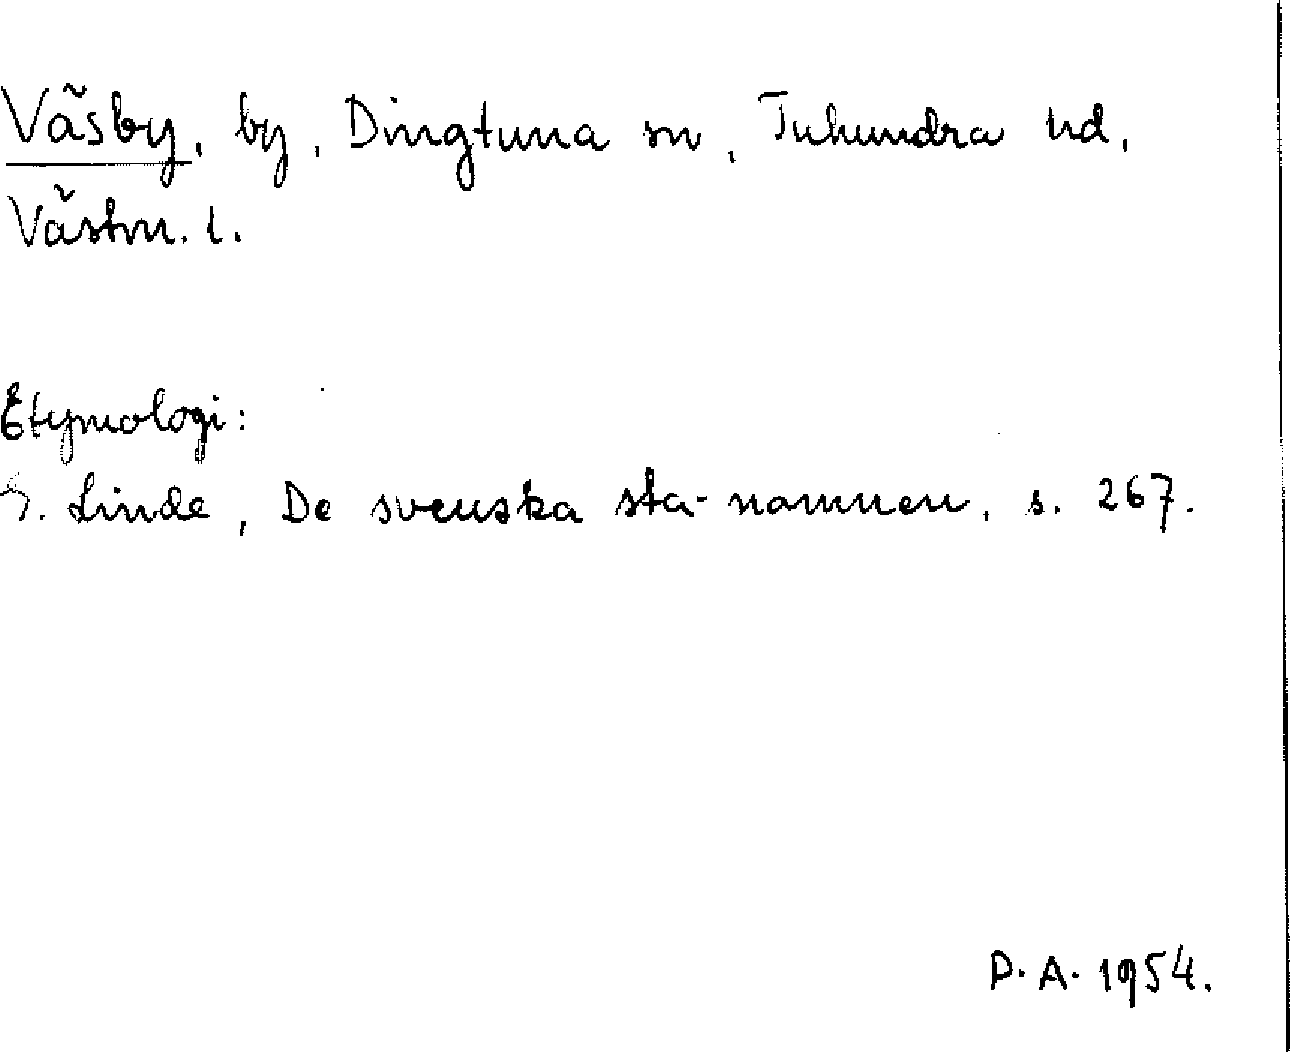 Väsby, by, Dingtuna sn, Tuhundra hd,
Västm. l.
Etymologi:
G. Linde, De svenska sta-namnen, s. 267.
P. A. 1954.